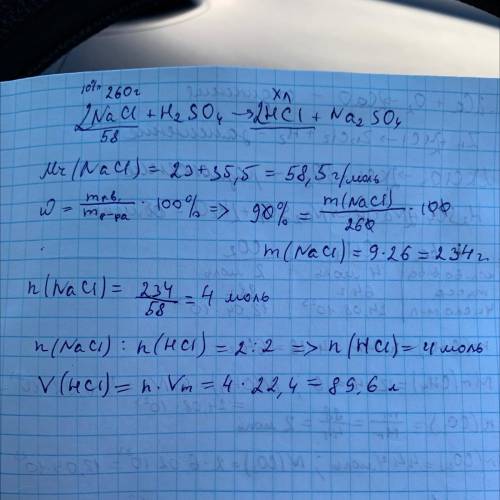 10%п 260г хл
2NaCl + H₂SO₄ → 2HCl + Na₂SO₄
58
Mr(NaCl) = 23 + 35,5 = 58,5 г/моль
ω = mр.в./mр-ра · 100% => 90% = m(NaCl)/260 · 100
m(NaCl) = 9 · 26 = 234 г.
n(NaCl) = 234/58 = 4 моль
n(NaCl) : n(HCl) = 2 : 2 => n(HCl) = 4 моль
V(HCl) = n · Vm = 4 · 22,4 = 89,6 л